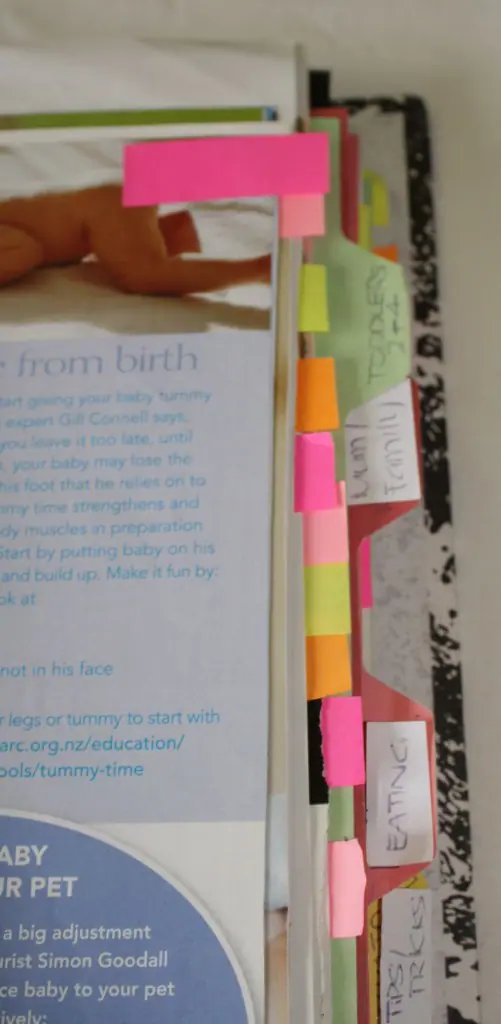 from birth
start giving your baby tummy
expert Gill Connell says,
you leave it too late, until
your baby may lose the
his foot that he relies on to
tummy time strengthens and
body muscles in preparation
Start by putting baby on his
and build up. Make it fun by:
ok at
not in his face
legs or tummy to start with
arc.org.nz/education/
ools/tummy-time
ABY
UR PET
a big adjustment
urist Simon Goodall
ce baby to your pet
ively:
TODDLERS
2-4
Mum/
Family/
EATING
TIPS/
TRICKS